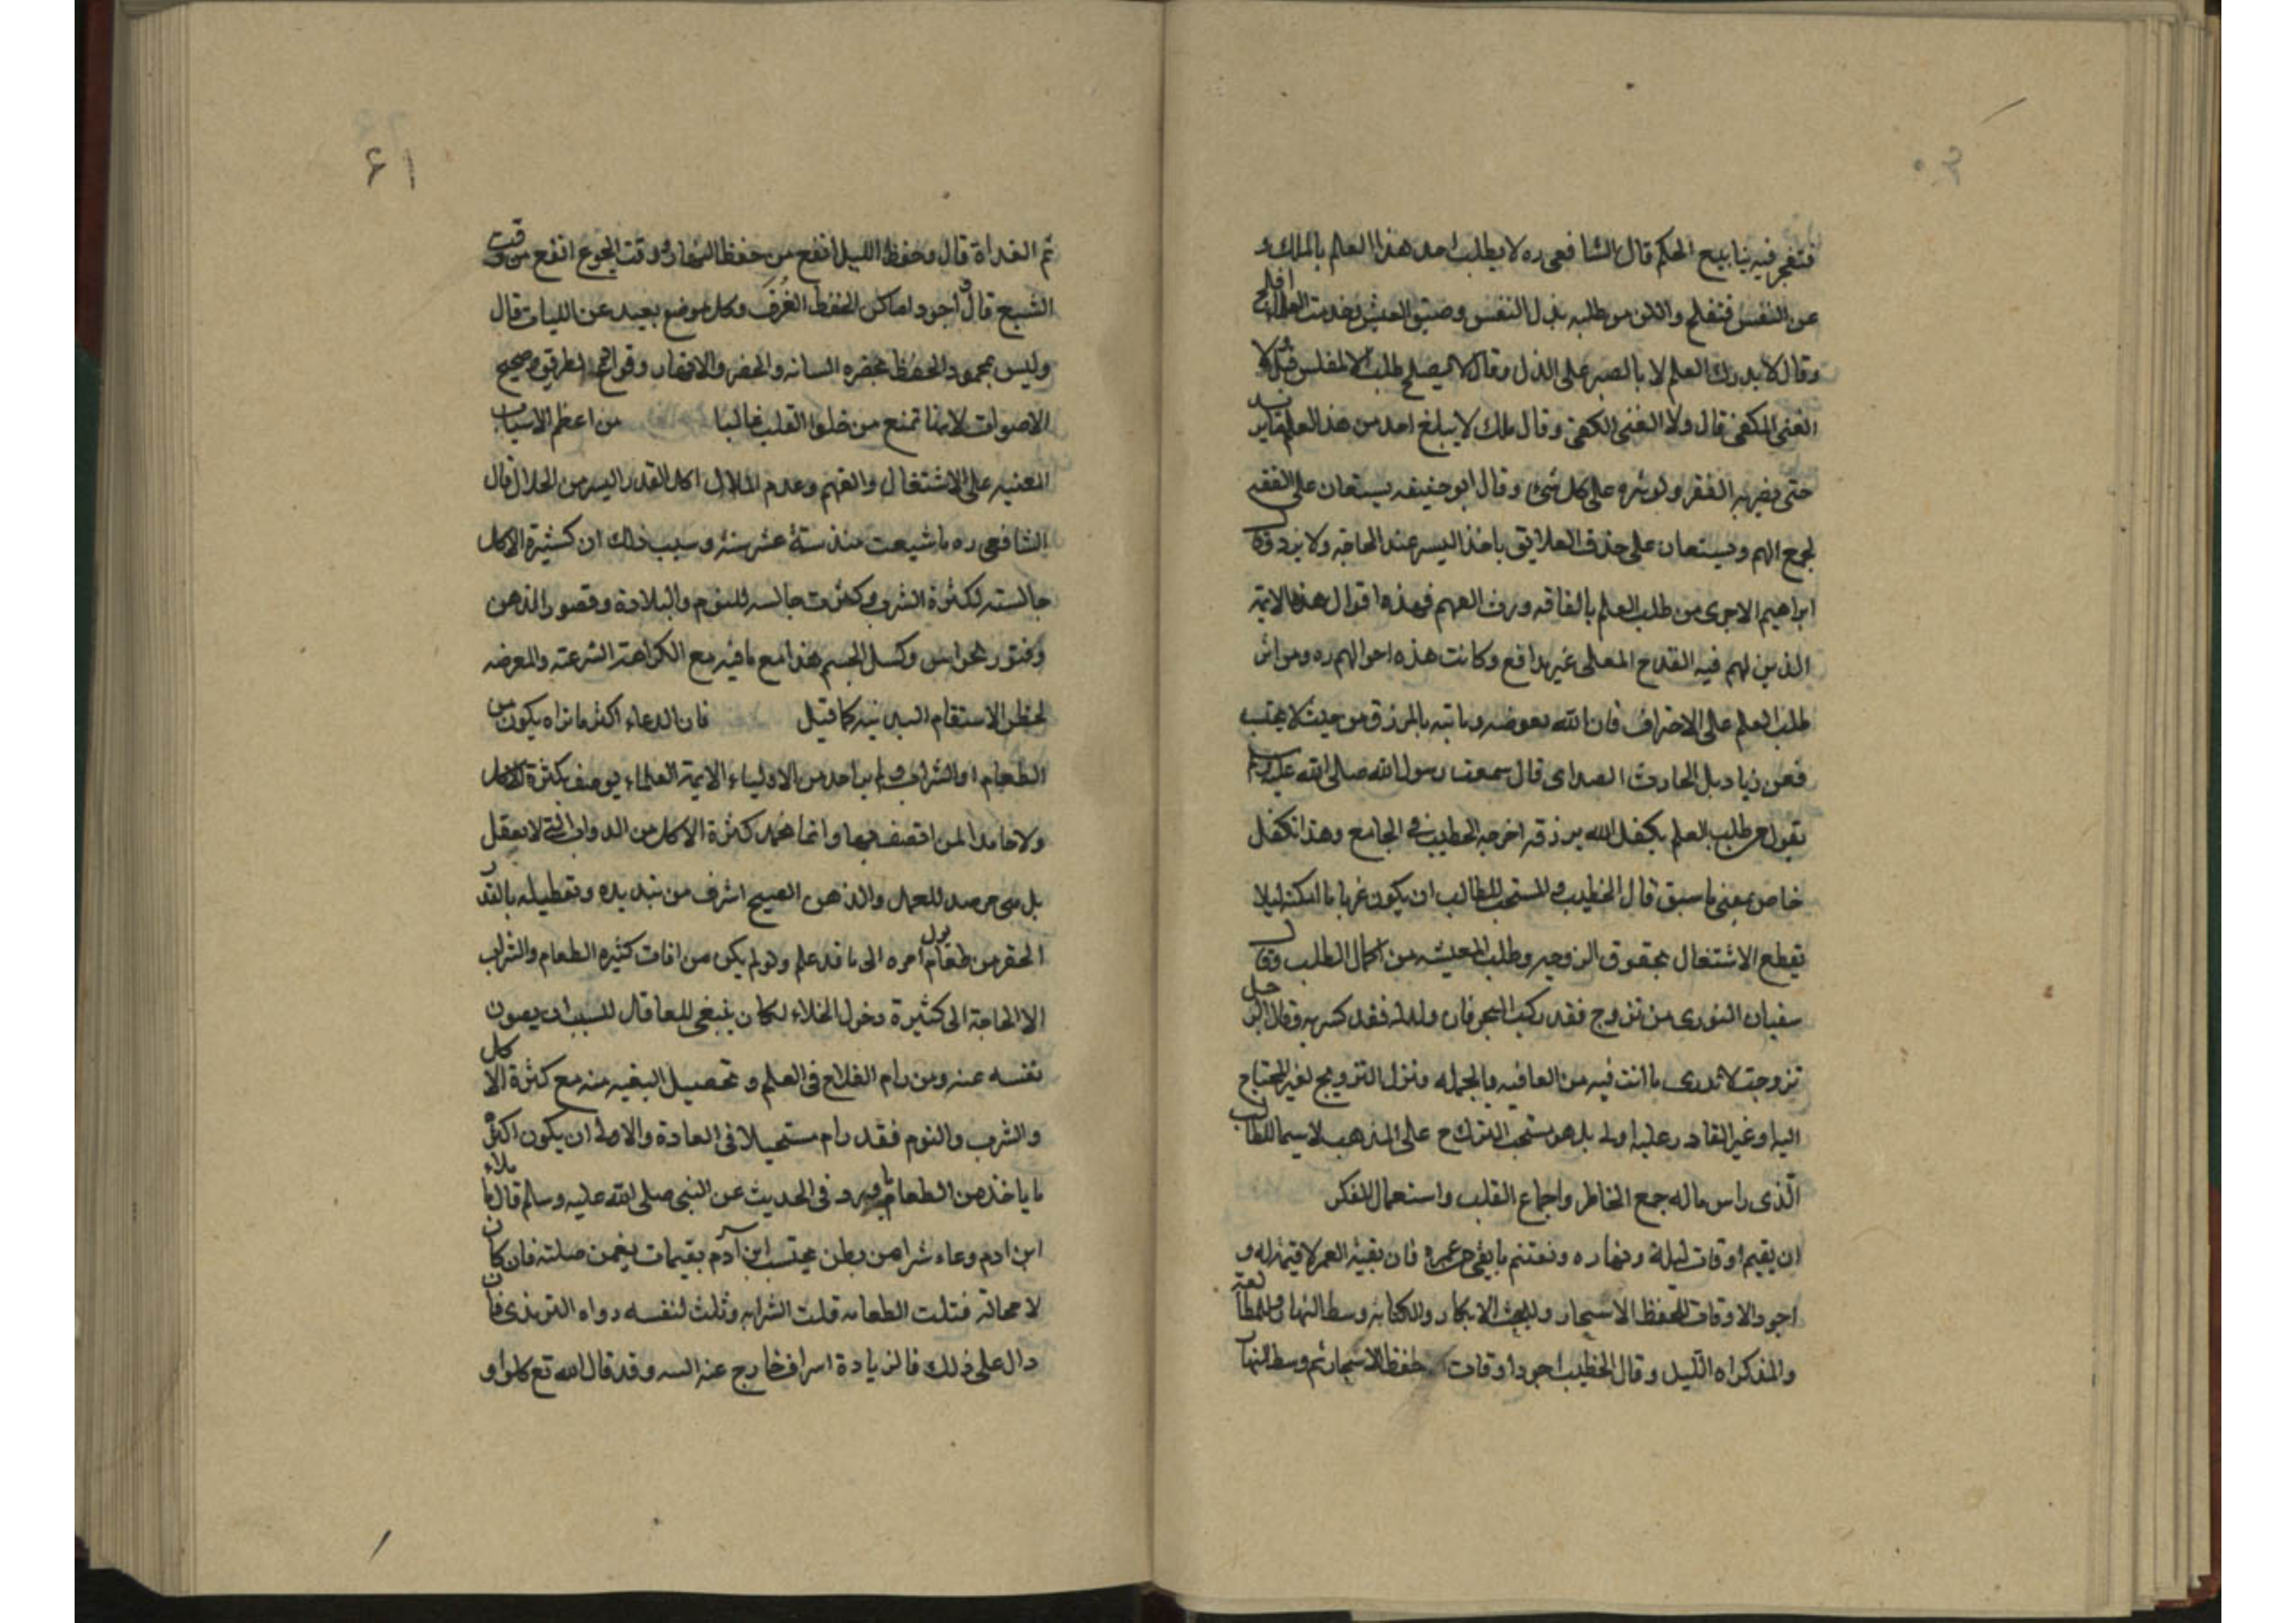 ٦٠
فتفجر فيه ينابيع الحكم قال الشافعي ره لا يطلب احد هذا العلم بالملك و
عن النفس فتفلح واللان من طلبه بذل النفس وضيق العيش وخدمت العلماء افلح
وقال لا يدرك العلم لا بالصبر على الذل وقال لا يصلح طلب الالمفلس فقيل ولا
الغنى المكفى قال ولا الغنى الكفى وقال ملك لا يبلغ احد من هذ العلم مايريد
حتى يضربه الفقر ولوثره على كل شئ وقال ابو حنيفه يستعان على الفقه
لجمع الهم ويستعان على حذف العلايق باخذ اليسر عند الحاجة ولا يزد وقال
ابراهيم الاجرى من طلب العلم بالفاقه ورث الفهم فهذه اقوال هذه الايمة
الذين لهم فيه القدح المعلى غير مدافع وكانت هذه احوالهم ره ومن اثر
طلب العلم على الاحتراف فان الله يعوضه وياتيه بالمرزق من حيث لا يحتسب
فعن زياد بل الحارث الصداى قال سمعت رسول الله صلى الله عليه وسلم
تقول من طلب العلم يكفل الله برزقه اخرجه الخطيب في الجامع وهذا تكفل
خاص بمعنى ما سبق قال الخطيب والمستحب للطالب ان يكون عزبا ما امكنه ليلا
تقطع الاشتغال بحقوق الزوجيه وطلب المعيشه من اكمال الطلب وقال
سفيان الثورى من تزوج فقد ركب البحر فان ولد له فقد كسر به وقال لرجل
تزوجت لا تدرى ما انت فيه من العافيه وبالجمله ونزل التزويج لغير المحتاج
اليه او غير القادر عليه اولى بلهو مستحب التزك ح على المذهب لاسيما للطالب
الذى راس ماله جمع الخاطر واجماع القلب واستعمال الفكر
ان يقيم اوقات ليلة ونهاره ونغتنم ما يبقى من عمره فان بقية العمر لا قيمة له و
اجود الاوقات للحفظ الاسحار وللبحث الابكار وللكتابه وسط النهار وللمطالعة
والمذكراه الليل وقال الخطيب اجود اوقات حفظ الاسحار ثم وسط النهار
٦١
ثم الغداة قال وحفظ الليل انفع من حفظ النهار ووقت الجوع انفع من وقت
الشبع قال اجود اماكن الحفظ الغرف وكل موضع بعيد عن اللهيات قال
وليس بمحمود الحفظ بحضره السانه والحضر والانهار وقوارع الطريق وصحيح
الاصوات لانها تمنع من خلوا القلب غالبا من اعظم الاسباب
المعنيه على الاشتغال والفهم وعدم الملال اكل القدر اليسر من الحلال قال
الشافعي ره ما شبعت منذ ستة عشر سنة وسبب ذلك ان كثيرة الاكل
جالسته لكثرة الشرب وكثرت جالسه للنوم والبلادة وقصور الذهن
وفتور الحواس وكسل الجسم هذا مع مافيه مع الكراهة الشرعته والمعرضه
لخطر الاسقام البدنيه كما قيل فان الدعاء اكثر ما تراه يكون من
الطعام او الشراب ولم ير احد من الاولياء الايمة العلماء يوصف بكثرة الاكل
ولا حامدا لمن اتصف بها وانما تحمد كثرة الاكل من الدواب التى لا يعقل
بل هي مرصد للعمل والذهن الصيح اشرف من تبديده وتعطيله بالقدر
الحقر من طعام يول امره الى ما قد علم ولو لم يكن من افات كثيره الطعام والشراب
الا الحاجة الى كثيرة دخول الخلاء لكان ينبغى للعاقال للسبب ان يصون
نفسه عنه ومن رام الفلاح فى العلم و تحصيل البغيه منه مع كثرة الاكل
والشرب والنوم فقد رام مستحيلا فى العادة والاولى ان يكون اكثره
ما ياخذ من الطعام ما ورد فى الحديث عن النبى صلى الله عليه وسلم قال ما ملاء
ابن ادم وعاء شرا من بطن بحسب ابن آدم بقيمات يقمن صلته فان كان
لا محالة فتلت الطعامه قلت الشرابه وثلث لنفسه رواه الترمذى فان
دال على ذلك فالزيادة اسراف خارج عنه السه وقد قال الله تع كلوا و